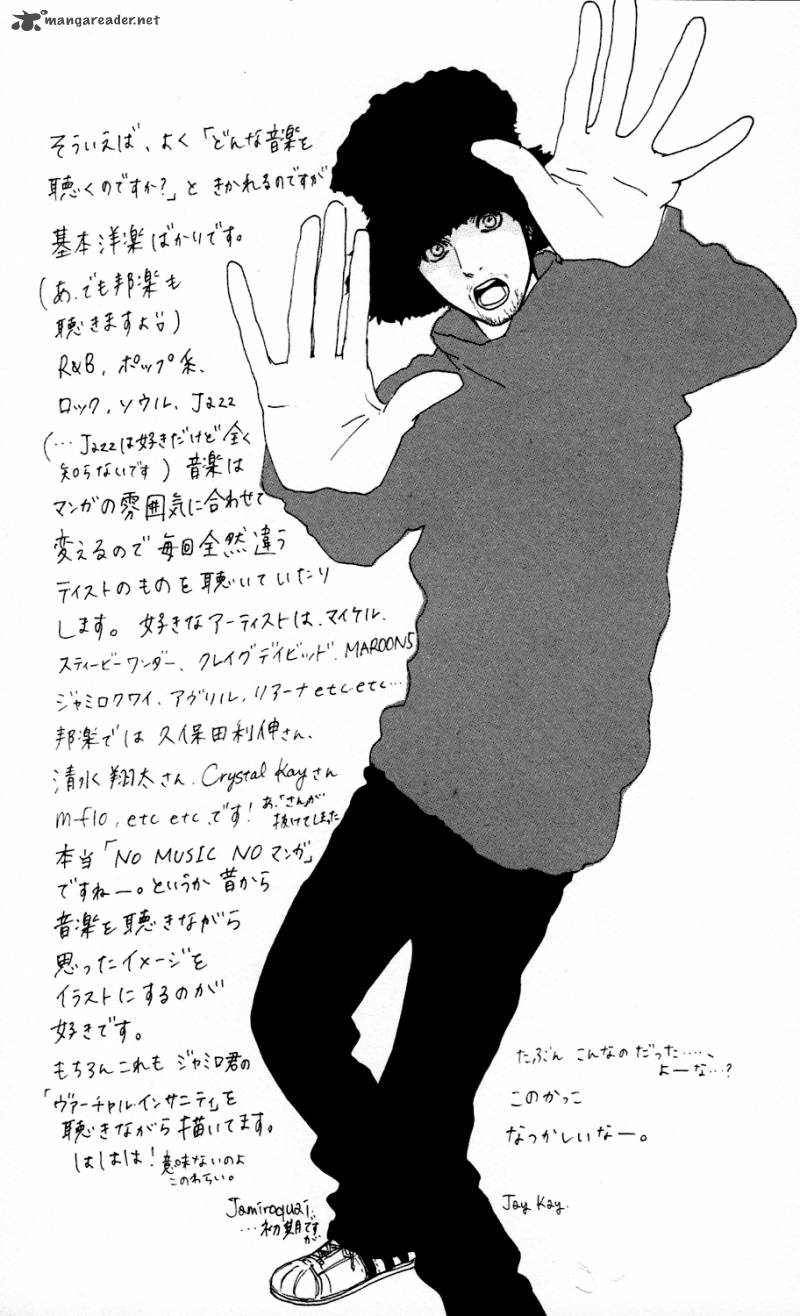 mangareader.net
そういえば、よく「どんな音楽を
聴くのですか?」と きかれるのですが
基本洋楽ばかりです。
(あ、でも邦楽も
聴きますよ)
R&B, ポップ系、
ロック、ソウル、Jazz
(…Jazzは好きだけど全く
知らないです) 音楽は
マンガの雰囲気に合わせて
変えるので毎回全然違う
テイストのものを聴いていたり
します。好きなアーティストは、マイケル、
スティービーワンダー、クレイグデイビッド、MAROON5
ジャミロクワイ、アヴリル、リアーナ etc etc…
邦楽では 久保田利伸さん、
清水翔太さん、Crystal Kayさん
m-flo, etc etc、です! あ、「さん」が
抜けてしまった
本当「NO MUSIC NO マンガ」
ですねー。というか 昔から
音楽を聴きながら
思ったイメージを
イラストにするのが
好きです。
もちろんこれも ジャミロ君の
「ヴァーチャル・インサニティ」を
聴きながら描いてます。
はしはは! 意味ないのよ
このわらい。
Jamiroquai
…初期ですが
たぶん こんなのだった……、
よーな…?
このかっこ
なつかしいなー。
Jay Kay.